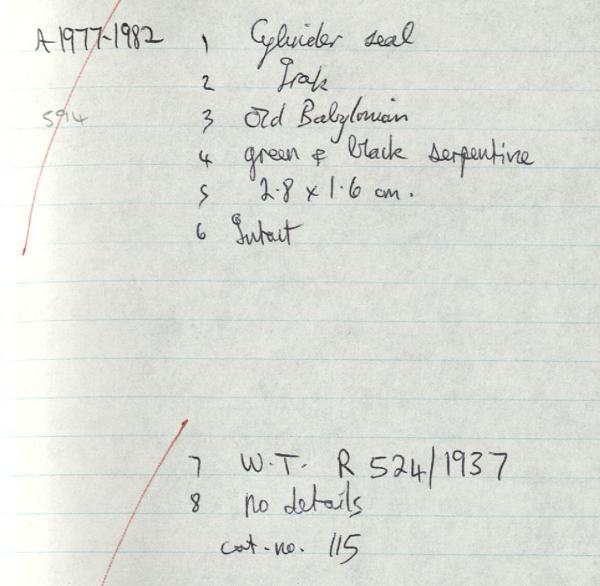 A-1977-1982 1 Cylinder seal
2 Irak
594 3 Old Babylonian
4 green & black serpentine
5 2.8 x 1.6 cm.
6 Intact
7 W.T. R 524/1937
8 no details
cat. no. 115